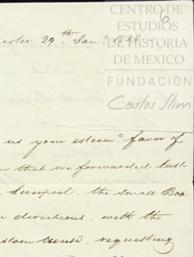 CENTRO DE
ESTUDIOS
DE HISTORIA
DE MEXICO
FUNDACIÓN
Carlos Slim
6
29th Jany
us your esteemd favor of
that we forwarded last
Liverpool the small Box
directions, with the
House, requesting